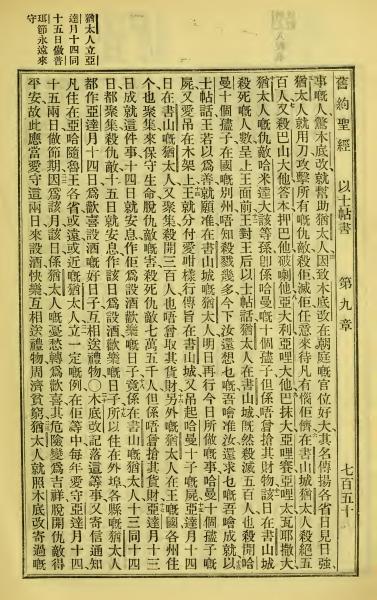 猶太人立亞
達月十四同
十五日做普
珥節永遠來
守
舊約聖經 以士帖書 第九章 七百五十
事嘅人、驚木底改就幫助猶太人、因致木底改在朝庭嘅官位好大、其名傳揚各省、日見日強、
猶太人就用刀攻擊所有嘅仇敵、殺滅佢、任意來待凡有惱佢儕、在書山城猶太人殺絕五
百人、又殺巴山大他答木押巴他破喇他亞大利亞哩大他巴抹大亞哩賽亞哩太瓦耶撒大、
猶太人嘅仇敵哈米達大該等孫卽係哈曼嘅十個孻子、但係唔曾搶其財物、該日在書山城
殺死嘅人數呈上王面前、王對王后以士帖話、猶太人在書山城既然殺滅五百人、也殺開哈
曼十個孻子、在國嘅別州唔知殺幾多、今下汝還想乜嘅吾唅准汝、還求乜嘅吾唅成就、以
士帖話、王若以爲善、就願准在書山城嘅猶太人明日再行今日所做嘅事、哈曼十個孻子嘅
屍又愛吊在木架上、王就分付愛咁樣行、傳旨在書山城、又吊起哈曼十子嘅屍、亞達月十四
日、在書山嘅猶太人又聚集殺開三百人、也唔曾取其貨財、另外猶太人在王嘅國各州住
个也聚集來保守生命、脫有敵嘅害、殺死仇敵七萬五千人、但係唔曾搶其貨財、亞達月十三
日成就這件事、十四日就安息作佢爲設酒歡樂嘅日子、竟係在書山嘅猶太人、十三同十四
日都聚集殺仇敵、十五日就安息、作該日爲設酒歡樂嘅日子、所以住在外埠各縣嘅猶太人
都作亞達月十四日爲歡喜設酒嘅好日子、互相送禮物、○木底改記落這等事、又寄信通知
凡住在亞哈隨魯王各省、或遠或近嘅猶太人、立一定嘅例在佢等中、每年愛守亞達月十四
十五兩日做節期、因爲該月該日係猶太人嘅憂愁轉爲歡喜、其危險變爲吉祥、脫開仇敵得
平安、故此應當愛守這兩日來設酒快樂、互相送禮物、周濟貧窮、猶太人就照木底改寄過嘅